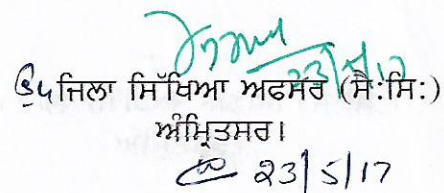 23/5/17
ਉਪ ਜਿਲਾ ਸਿੱਖਿਆ ਅਫਸਰ (ਸੈ:ਸਿ:)
ਅੰਮ੍ਰਿਤਸਰ।
23/5/17